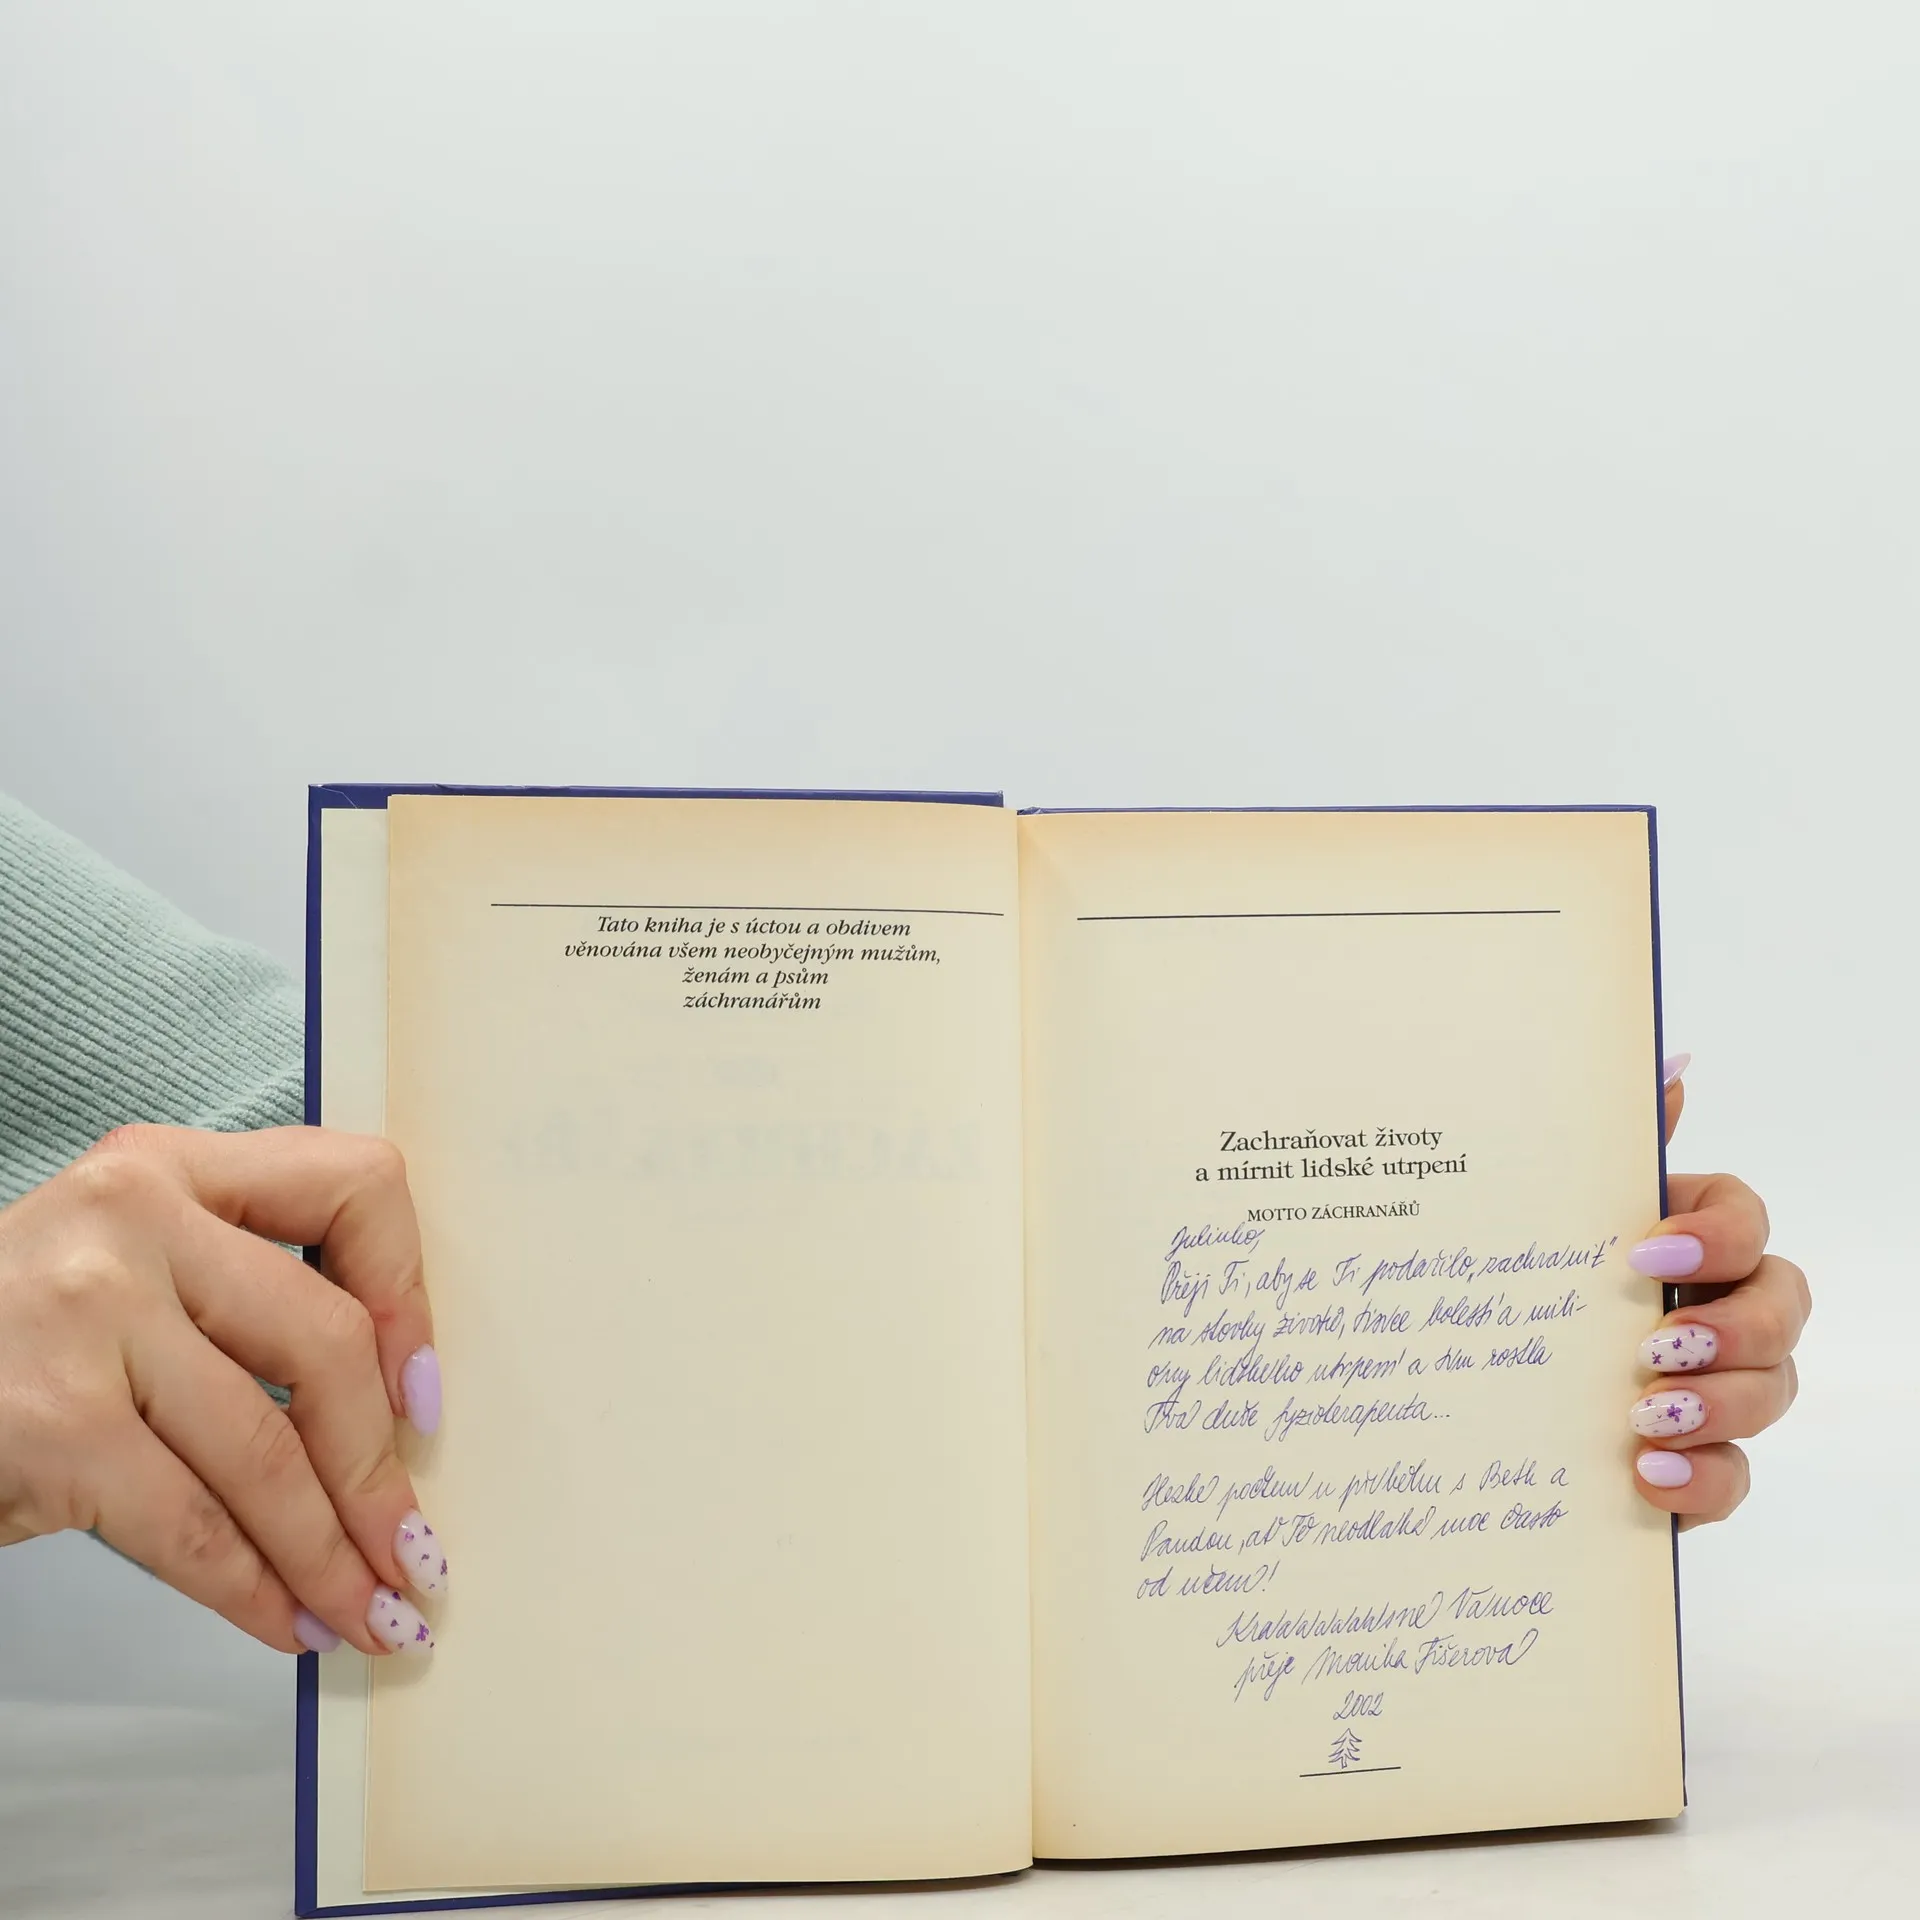 Tato kniha je s úctou a obdivem
věnována všem neobyčejným mužům,
ženám a psům
záchranářům
Zachraňovat životy
a mírnit lidské utrpení
MOTTO ZÁCHRANÁŘŮ
Julinko,
Přeji Ti, aby se Ti podařilo „zachránit"
na stovky životů, tisíce bolestí a mili-
ony lidského utrpení a tím rostla
Tvá duše fyzioterapeuta...
Hezké počtení u příběhu s Beth a
Pandou, ať Tě neodláká moc často
od učení!
Kráááááásné Vánoce
přeje Monika Fišerová
2002